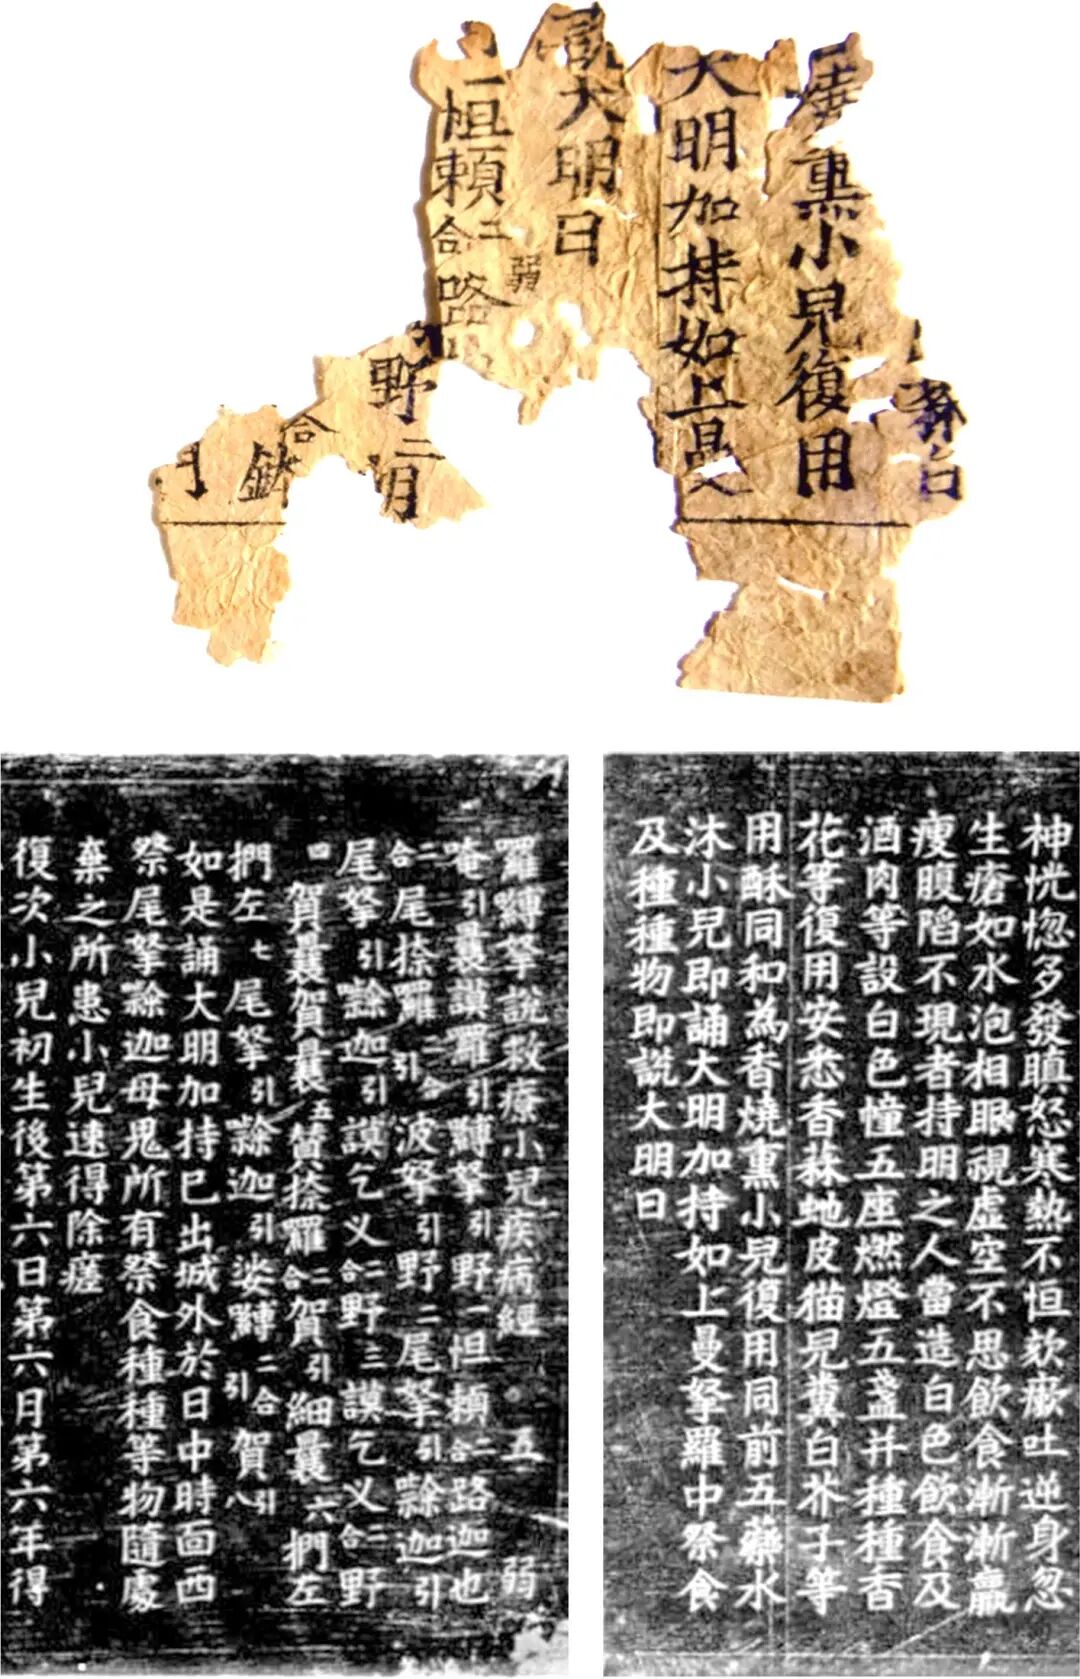 糞白
熏小兒復用
大明加持如上曼
說大明曰
弱
一怛賴二合路
野二
合
鉢
神恍惚多發瞋怒寒熱不恒欬瘶吐逆身忽
生瘡如水泡相眼視虛空不思飲食漸漸羸
瘦腹陷不現者持明之人當造白色飲食及
酒肉等設白色幢五座燃燈五盞并種種香
花等復用安悉香蒜虵皮猫兒糞白芥子等
用酥同和為香燒熏小兒復用同前五藥水
沐小兒即誦大明加持如上曼拏羅中祭食
及種種物即説大明曰
囉嚩拏說救療小兒疾病經 五 弱
唵引曩謨囉引嚩拏引野一怛賴二合路迦也
二合尾捺囉二合引波拏引野二尾拏引䶨迦引
尾拏引䶨迦引謨乞义二合野三謨乞义二合野
四賀曩賀曩五贊捺囉二合賀引細曩六捫左
捫左七尾拏引䶨迦引娑嚩二合引賀引八
如是誦大明加持已出城外於日中時面西
祭尾拏䶨迦母鬼所有祭食種種等物隨處
棄之所患小兒速得除瘥
復次小兒初生後第六日第六月第六年得